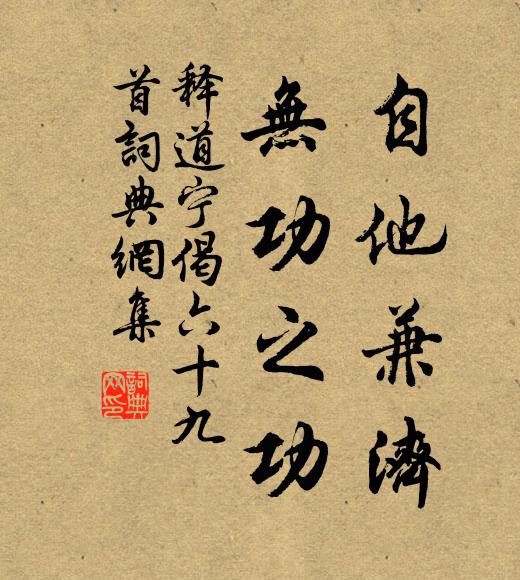 自他兼濟
無功之功
释道宁偈六十九
首詞典網集
詞典
网印